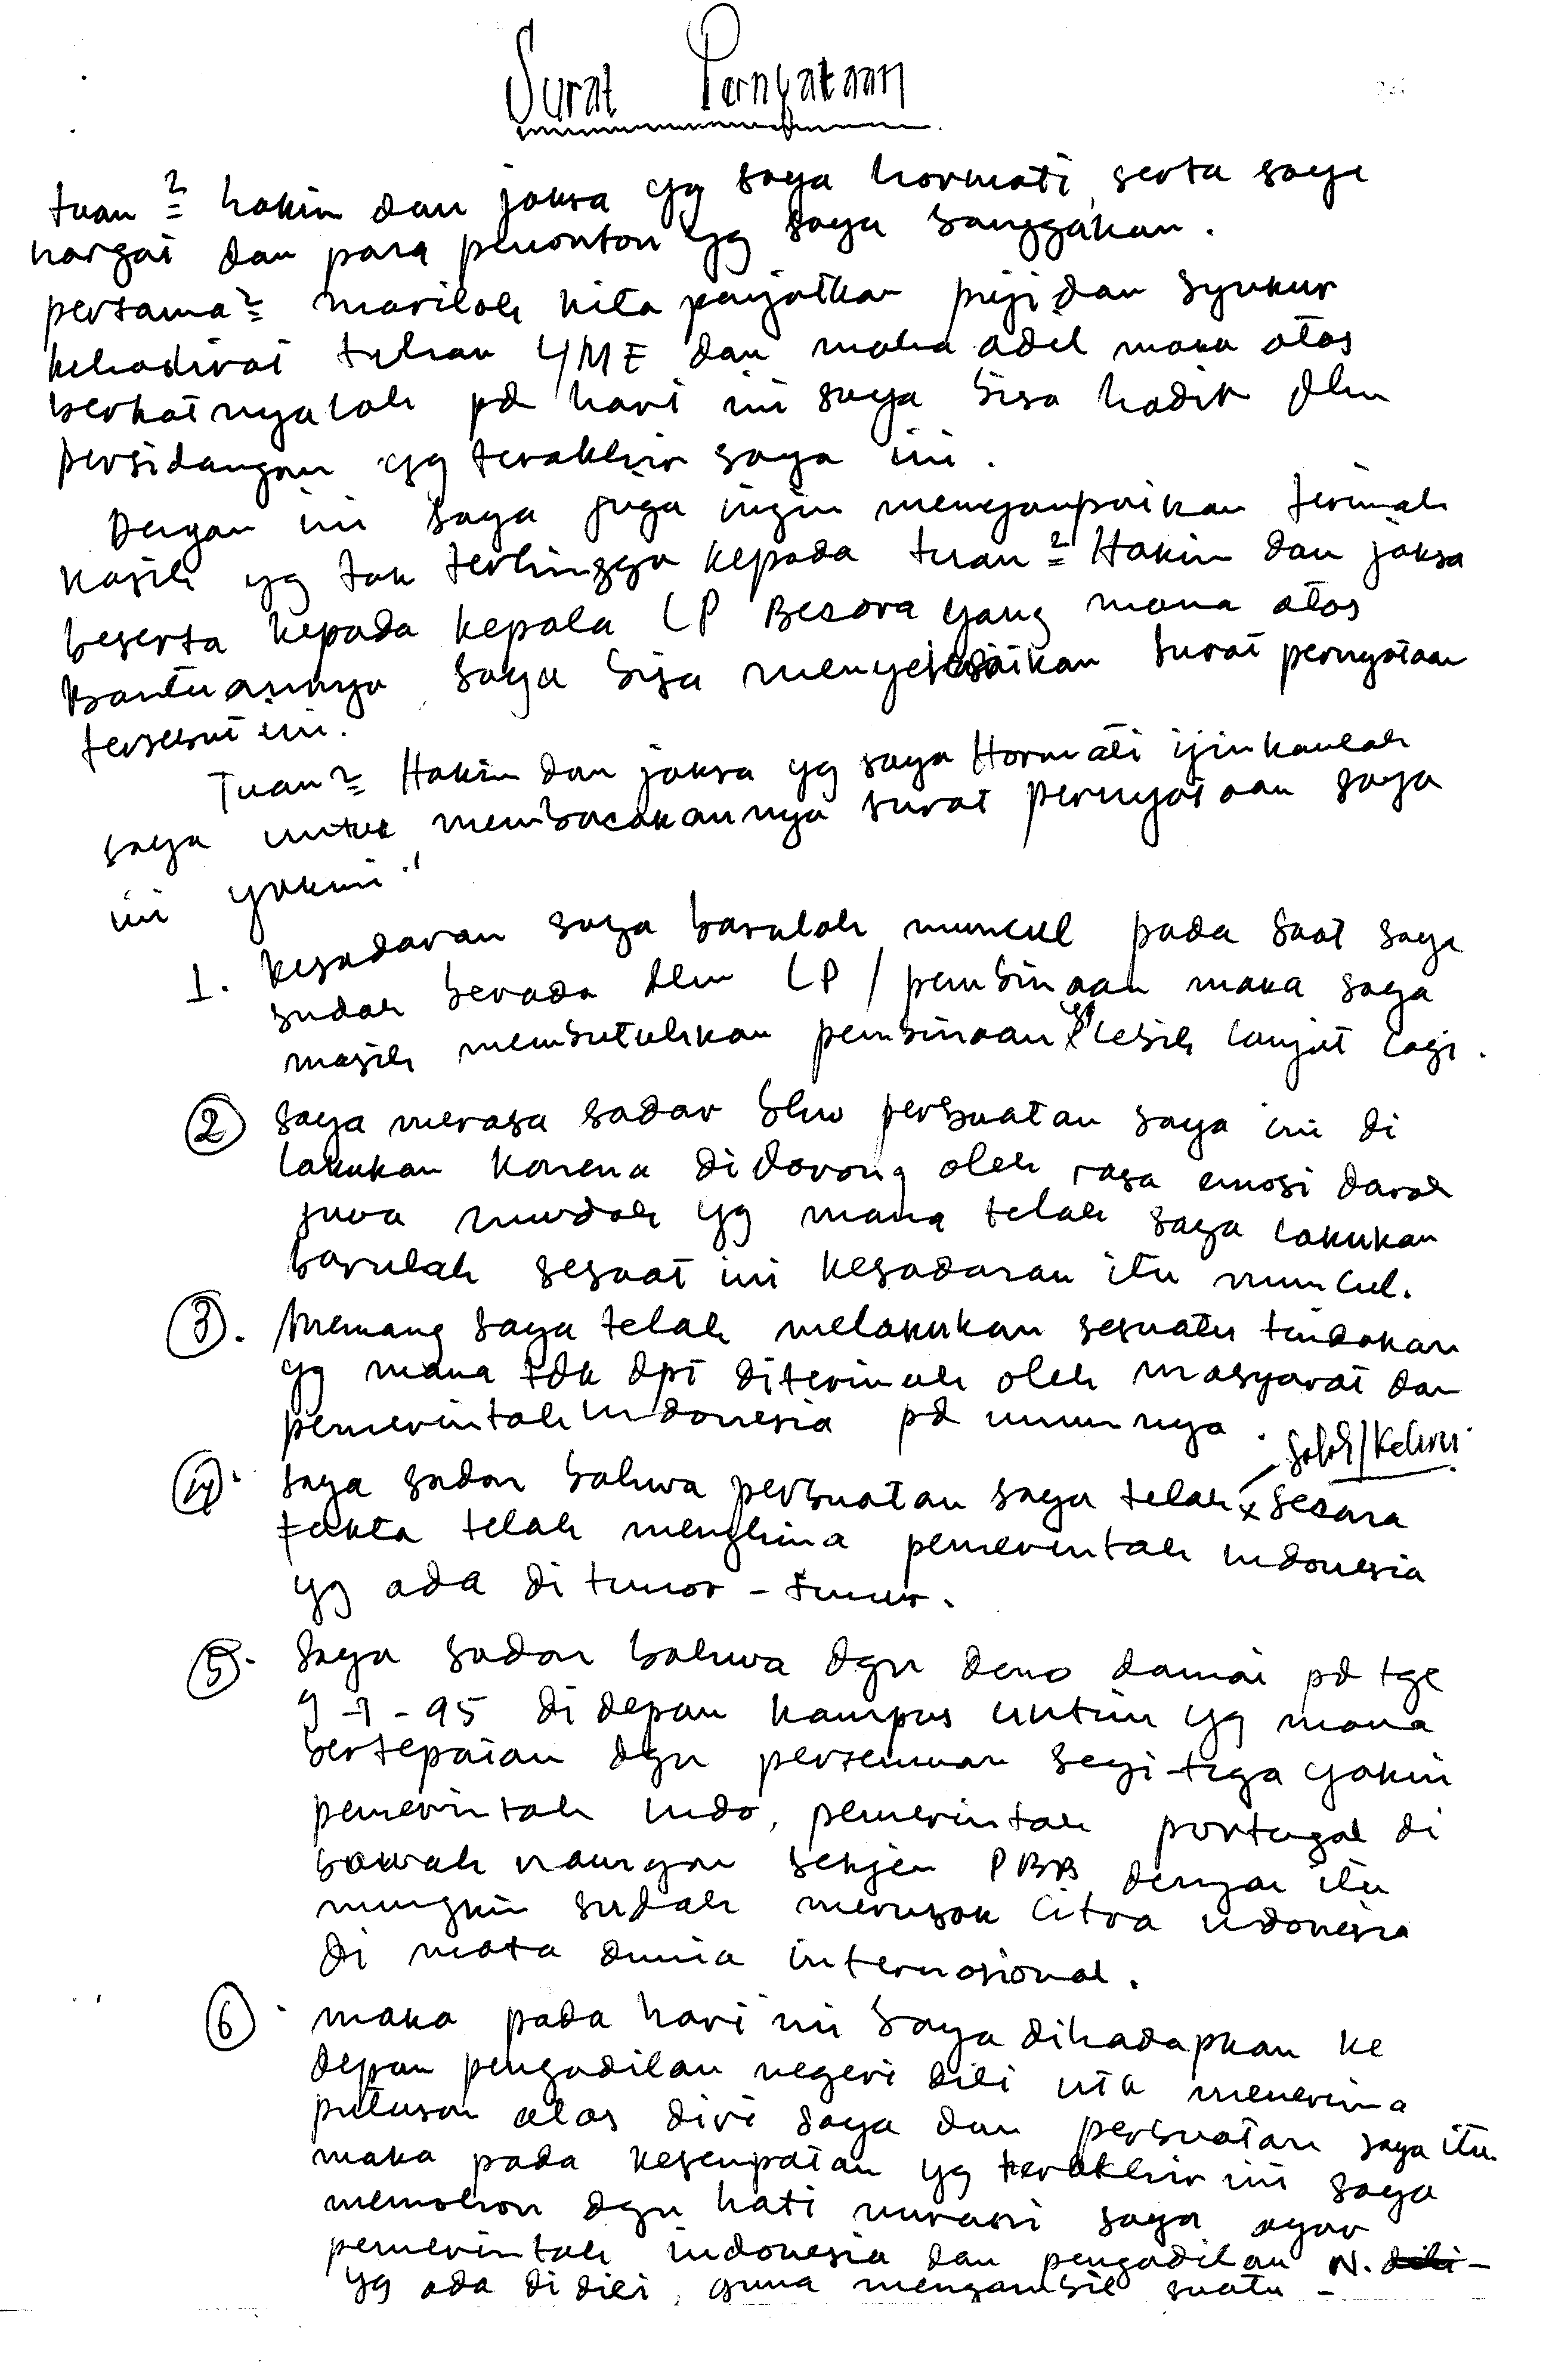 Surat Pernyataan
tuan² hakim dan jaksa yg saya hormati serta saya
hargai dan para penonton yg saya banggakan.
pertama² marilah kita panjatkan puji dan syukur
kehadirat tuhan YME dan maha adil maka atas
berkatnyalah pd hari ini saya bisa hadir dlm
persidangan yg terakhir saya ini.
Dengan ini saya juga ingin menyampaikan terimah
kasih yg tak terhingga kepada tuan² Hakim dan jaksa
beserta kepada kepala LP Becora yang mana atas
bantuannya saya bisa menyelesaikan surat pernyataan
tersebut ini.
Tuan² Hakim dan jaksa yg saya Hormati ijinkanlah
saya untuk membacakannya surat pernyataan saya
ini yakni"
1. kesadaran saya barulah muncul pada saat saya
sudah berada dlm LP / pembinaan maka saya
masih membutuhkan pembinaan yg lebih lanjut lagi.
2 saya merasa sadar bhw perbuatan saya ini di
lakukan karena didorong oleh rasa emosi darah
juwa mudah yg mana telah saya lakukan
barulah sesaat ini kesadaran itu muncul.
3. Memang saya telah melakukan sesuatu tindakan
yg mana tdk dpt diterimah oleh masyarat dan
pemerintah Indonesia pd umumnya.
salah/keliru
4. saya sadar bahwa perbuatan saya telah x secara
fakta telah menghina pemerintah indonesia
yg ada di timor - timur.
5. saya sadar bahwa dgn demo damai pd tgl
9-1-95 di depan kampus untim yg mana
bertepatan dgn pertemuan segi-tiga yakni
pemerintah indo, pemerintah portugal di
bawah naungan sekjen PBB dengan itu
mungkin sudah merusak citra indonesia
di mata dunia internasional.
6. maka pada hari ini saya dihadapkan ke
depan pengadilan negeri dili utk menerima
putusan atas diri saya dan perbuatan saya itu.
maka pada kesempatan yg terakhir ini saya
memohon dgn hati nurani saya agar
pemerintah indonesia dan pengadilan N. dili -
yg ada di dili, guna mengambil suatu -